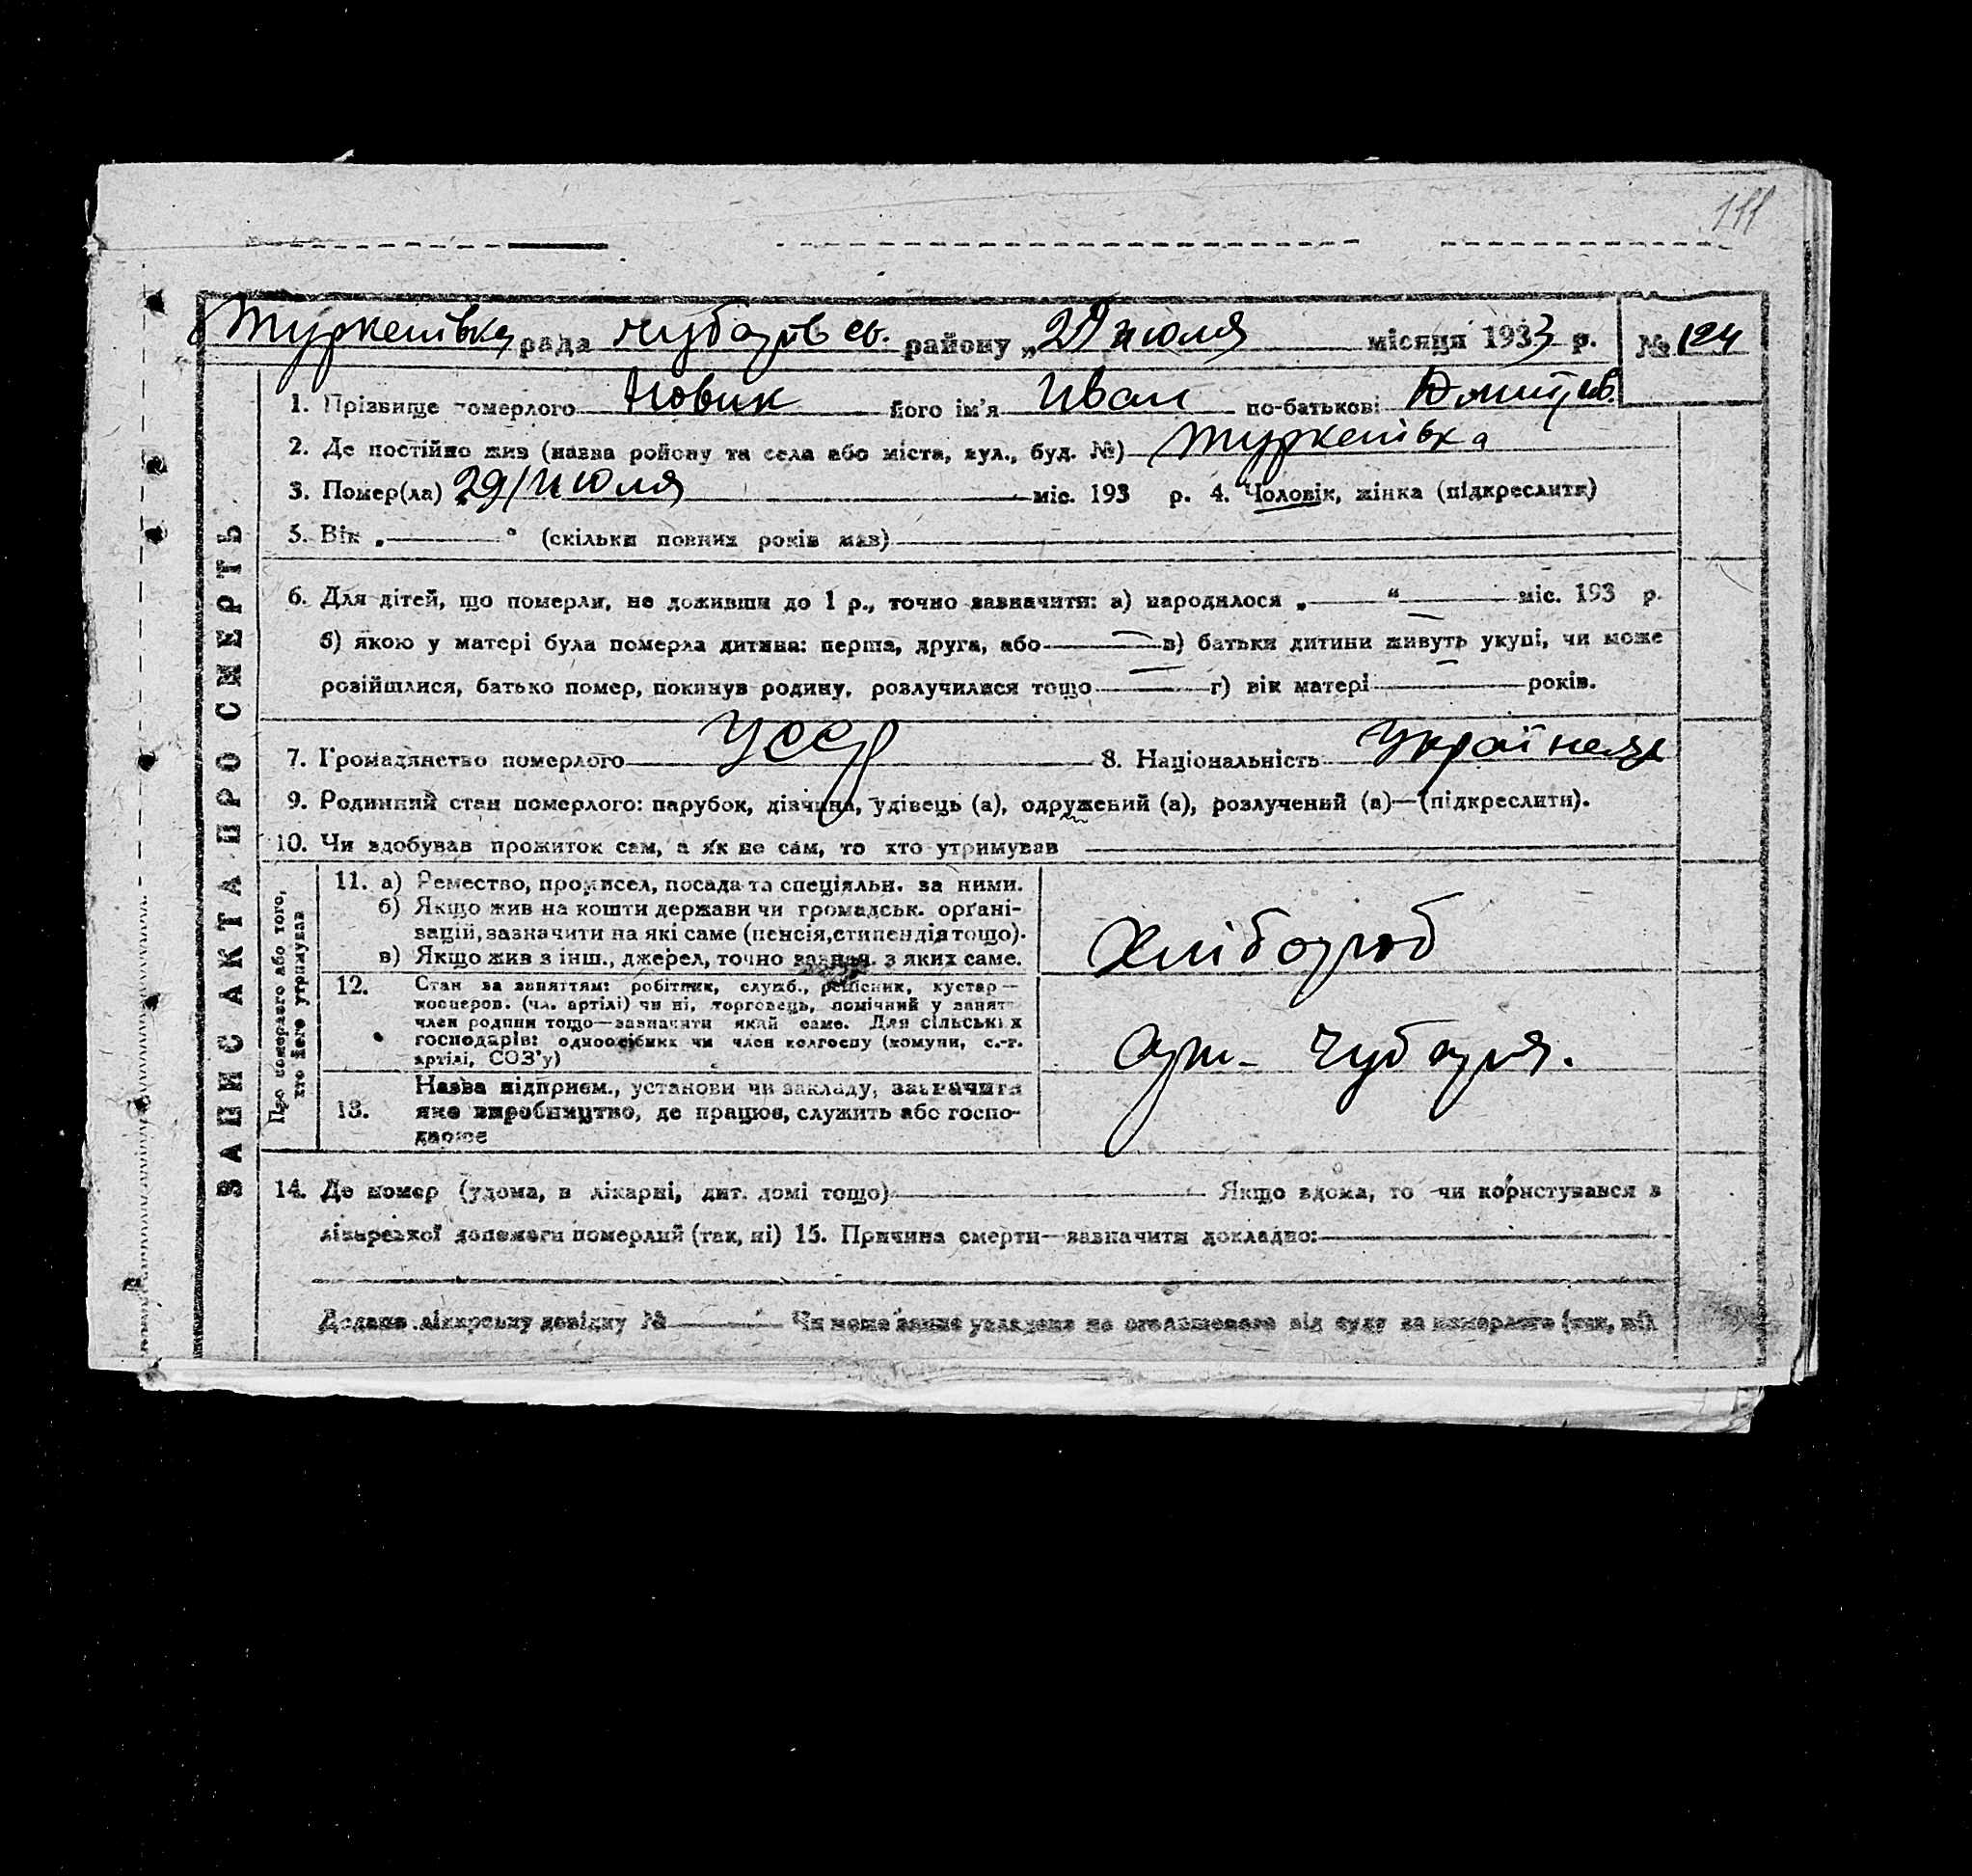 Туркенівка рада Чубарівсь. району „29 июля місяця 1933 р. № 124
1. Прізвище померлого Новик його ім'я Иван по-батькові
2. Де постійно жив (назва ройону та села або міста, вул., буд. №) Туркенівка
3. Помер(ла) 29/июля міс. 193 р. 4. Чоловік, жінка (підкреслити)
5. Вік „ " (скільки повних років мав)
6. Для дітей, що померли, не доживши до 1 р., точно зазначити: а) народилося „ “ міс. 193 р.
б) якою у матері була померла дитина: перша, друга, або в) батьки дитини живуть укупі, чи може
розійшлися, батько помер, покинув родину, розлучилися тощо г) вік матері років.
7. Громадянство померлого УССР 8. Національність Українець
9. Родинний стан померлого: парубок, дівчина, удівець (а), одружений (а), розлучений (а)—(підкреслити).
10. Чи здобував прожиток сам, а як не сам, то хто утримував
ЗАПИС АКТА ПРО СМЕРТЬ
Про померлого або того,
хто його утримував
11. а) Ремество, промисел, посада та спеціяльн. за ними.
б) Якщо жив на кошти держави чи громадськ. орґані-
зацій, зазначити на які саме (пенсія, стипендія тощо).
в) Якщо жив з інш., джерел, точно зазнач. з яких саме.
Хлібороб
12. Стан за заняттям: робітник, служб., ремісник, кустар—
кооперов. (чл. артілі) чи ні, торговець, помічний у занятт
член родини тощо—зазначити який саме. Для сільських
господарів: одноосібник чи член колгоспу (комуни, с.-г.
артілі, СОЗ'у)
Арт. Чубаря.
13. Назва підприєм., установи чи закладу, зазначити
яке виробництво, де працює, служить або госпо-
дарює
14. Де помер (удома, в лікарні, дит. домі тощо) Якщо вдома, то чи користувався з
лікарської допомоги померлий (так, ні) 15. Причина смерти—зазначити докладно:
Додано лікарську довідку № Чи може запис укладено по оголошенню від суду за померлого (так, ні)